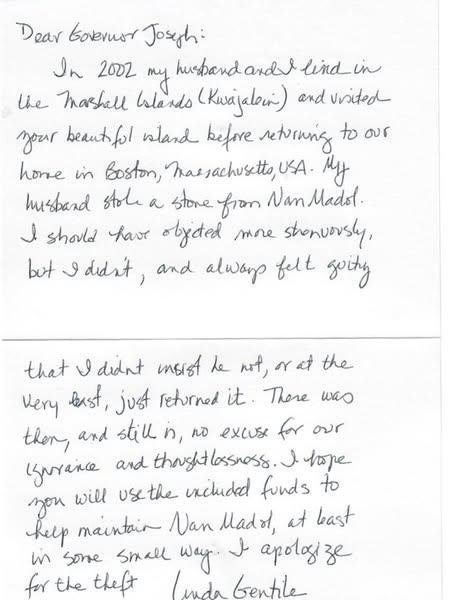 Dear Governor Joseph:
In 2002 my husband and I lived in
the Marshall Islands (Kwajalein) and visited
your beautiful island before returning to our
home in Boston, Massachusetts, USA. My
husband stole a stone from Nan Madol.
I should have objected more strenuously,
but I didn't, and always felt guilty
that I didnt insist he not, or at the
very least, just returned it. There was
then, and still is, no excuse for our
ignorance and thoughtlessness. I hope
you will use the included funds to
help maintain Nan Madol, at least
in some small way. I apologize
for the theft Linda Gentile